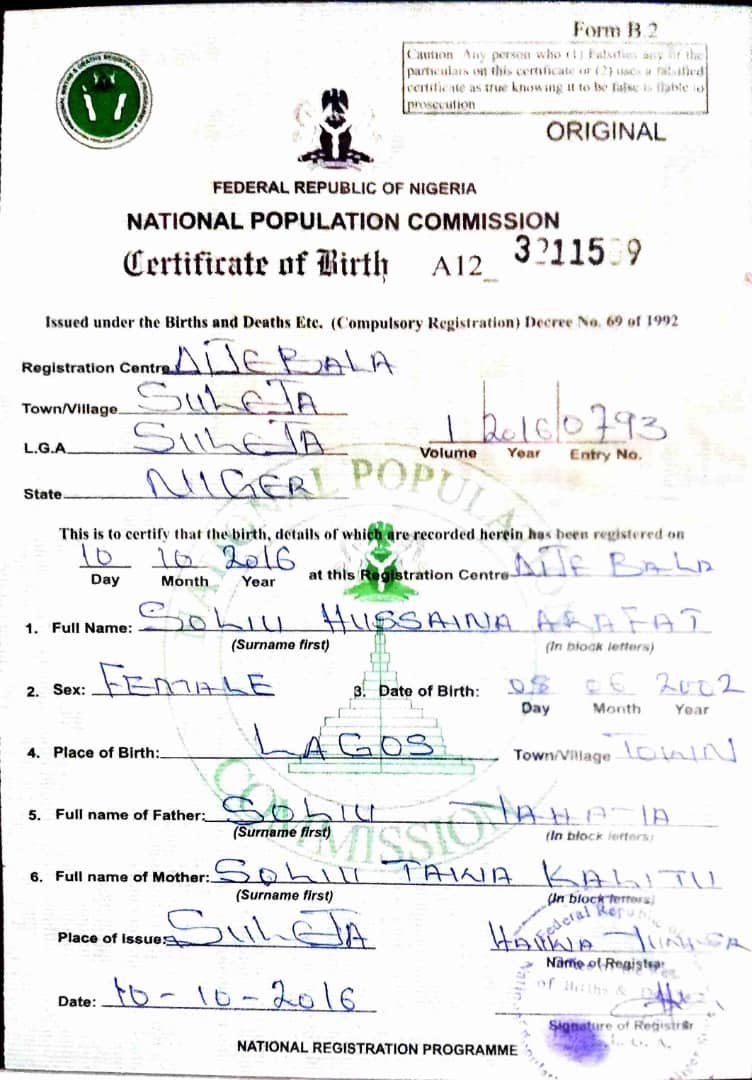 Form B.2
Caution Any person who (1) Falsifies any of the
particulars on this certificate or (2) uses a falsified
certificate as true knowing it to be false is liable to
prosecution
ORIGINAL
FEDERAL REPUBLIC OF NIGERIA
NATIONAL POPULATION COMMISSION
Certificate of Birth A12
Issued under the Births and Deaths Etc. (Compulsory Registration) Decree No. 69 of 1992
Registration Centre BALA
Town/Village SULEJA
L.G.A SULEJA
1 2016 0793
Volume Year Entry No.
State NIGER
This is to certify that the birth, details of which are recorded herein has been registered on
10 10 2016
Day Month Year at this Registration Centre BALA
1. Full Name: SOLIU HUSSAINA ARAFAT
(Surname first) (In block letters)
2. Sex: FEMALE 3. Date of Birth: 08 06 2002
Day Month Year
4. Place of Birth: LAGOS Town/Village TOWN
5. Full name of Father: SOLIU
(Surname first) (In block letters)
6. Full name of Mother: SOLIU TAWA
(Surname first) (In block letters)
Place of Issue: SULEJA
Name of Registrar
Date: 10-10-2016
Signature of Registrar
NATIONAL REGISTRATION PROGRAMME
NATIONAL POPULATION COMMISSION